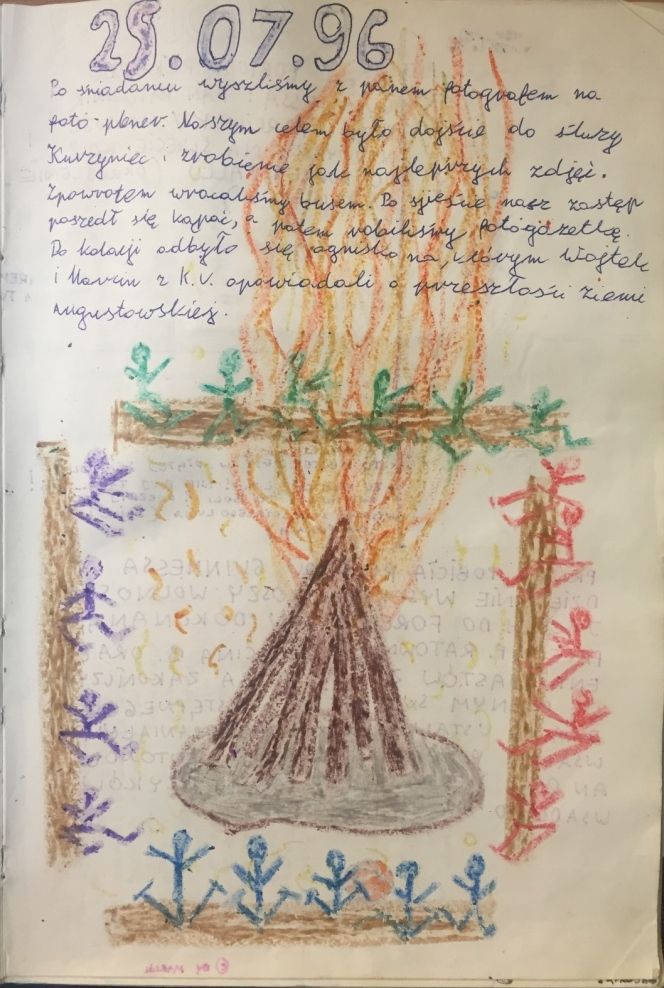 25.07.96
Po śniadaniu wyszliśmy z panem fotografem na
foto-plener. Naszym celem było dojście do śluzy
Kurzyniec i zrobienie jak najlepszych zdjęć.
Zpowrotem wracaliśmy busem. Po sjeście nasz zastęp
poszedł się kąpać, a potem robiliśmy fotogazetkę.
Po kolacji odbyło się ognisko na, którym Wojtek
i Marcin z K.V. opowiadali o przeszłości ziemi
augustowskiej.